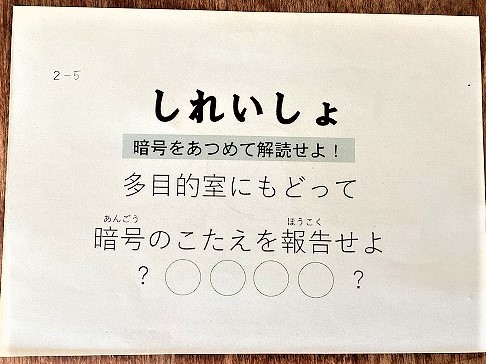 2-5
しれいしょ
暗号をあつめて解読せよ！
多目的室にもどって
あんごう ほうこく
暗号のこたえを報告せよ
？〇〇〇〇？